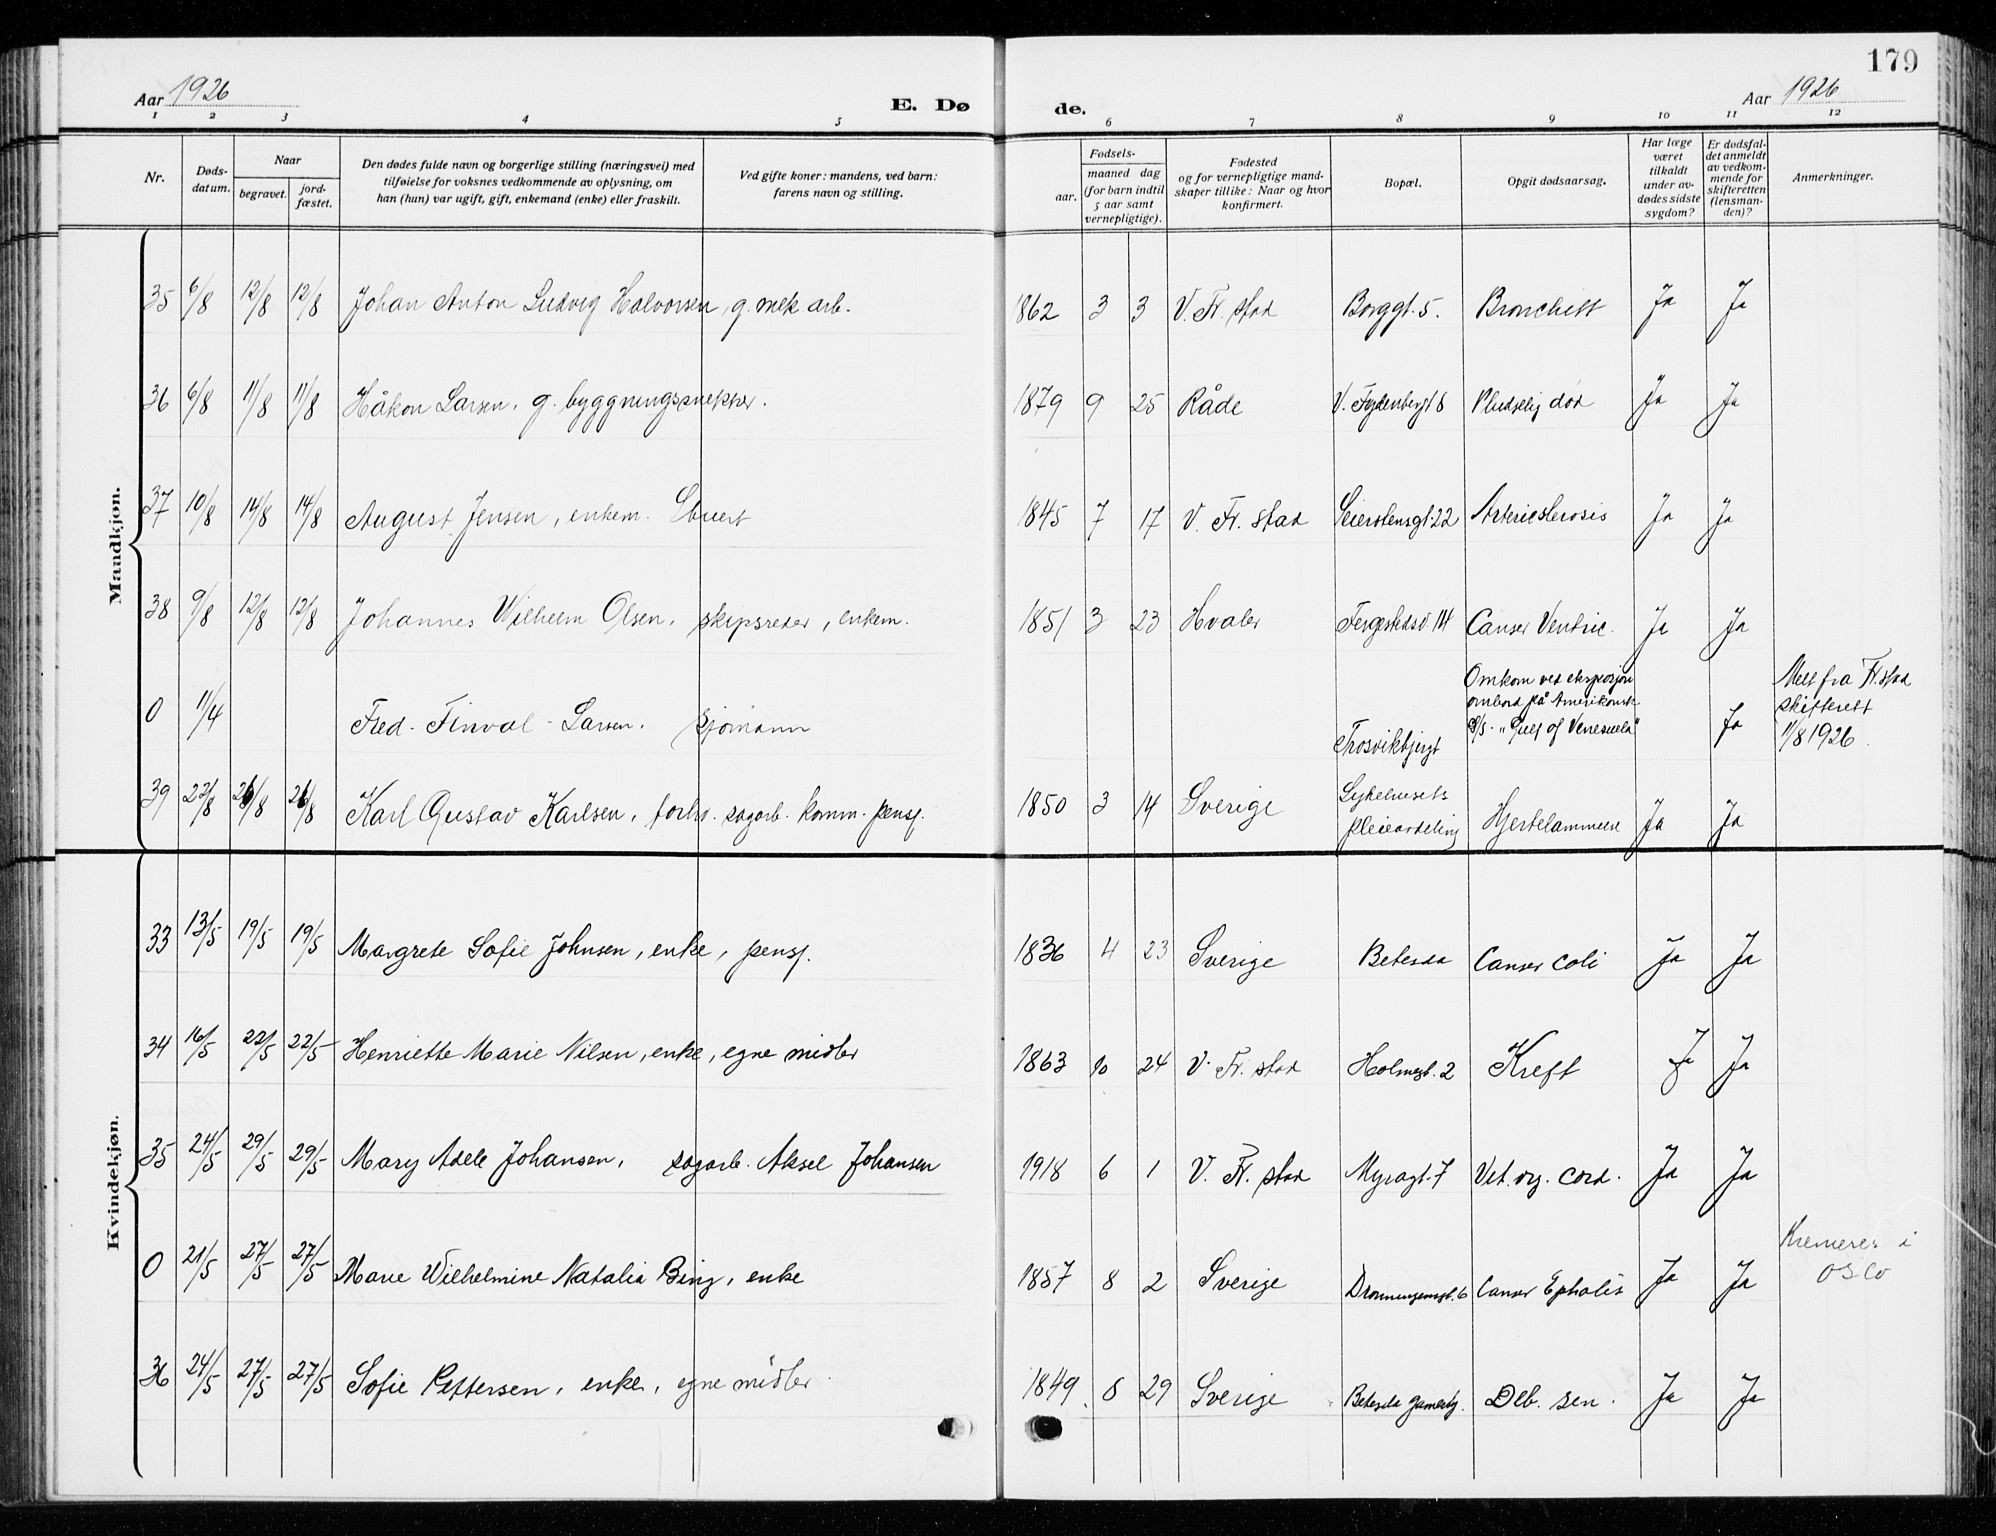 179
Aar 1926
E. Dø de.
Aar 1926
1 2 3 4 5 6 7 8 9 10 11 12
Nr.
Døds-
datum.
Naar
begravet.
jord-
fæstet.
Den dødes fulde navn og borgerlige stilling (næringsvei) med
tilføielse for voksnes vedkommende av oplysning, om
han (hun) var ugift, gift, enkemand (enke) eller fraskilt.
Ved gifte koner: mandens, ved barn:
farens navn og stilling.
Fødsels-
aar.
maaned dag
(for barn indtil
5 aar samt
vernepligtige).
Fødested
og for vernepligtige mand-
skaper tillike: Naar og hvor
konfirmert.
Bopæl.
Opgit dødsaarsag.
Har læge
været
tilkaldt
under av-
dødes sidste
sygdom?
Er dødsfal-
det anmeldt
av vedkom-
mende for
skifteretten
(lensman-
den)?
Anmerkninger.
Mandkjøn.
35 6/8 12/8 12/8 Johan Anton Ludvig Halvorsen, g. mek arb. 1862 3 3 V. Fr. stad Borggt. 5. Bronchitt Ja Ja
36 6/8 11/8 11/8 Håkon Larsen, g. byggningssnekker. 1879 9 25 Råde Pludselig død Ja Ja
37 10/8 14/8 14/8 August Jensen, enkem. 1845 7 17 V. Fr. stad Seierstensgt. 22 Ja Ja
38 9/8 12/8 12/8 Johannes Wilhelm Olsen, skipsreder, enkem. 1851 3 23 Hvaler Fergestedsv. 14 Canser Ventric. Ja Ja
0 11/4 Fred. Finval - Larsen. Sjømann Trosvikbjergt
Omkom ved eksplosjon
ombord på Amerikansk
S/S. "Gulf of Venesuela"
Ja
Melt fra Fr. stad
skifterett
11/8 1926.
39 22/8 26/8 26/8 Karl Gustav Karlsen, forhv. sagarb. komm. pensj. 1850 3 14 Sverige
Sykehusets
pleieavdeling
Hjertelammelse Ja Ja
Kvindekjøn.
33 13/5 19/5 19/5 Margrete Sofie Johnsen, enke, pensj. 1836 4 23 Sverige Betesda Canser coli Ja Ja
34 16/5 22/5 22/5 Henriette Marie Nilsen, enke, egne midler 1863 10 24 V. Fr. stad Holmegt. 2 Kreft Ja Ja
35 24/5 29/5 29/5 Mary Adele Johansen, sagarb. Aksel Johansen 1918 6 1 V. Fr. stad Myragt. 7 Vit. org. cord. Ja Ja
0 21/5 27/5 27/5 Marie Wilhelmine Natalia Bing, enke 1857 8 2 Sverige Dronningensgt. 6 Canser Ja Ja
Kremeres i
Oslo
36 24/5 27/5 27/5 Sofie Pettersen, enke, egne midler. 1849 8 29 Sverige Betesda Deb. sen. Ja Ja